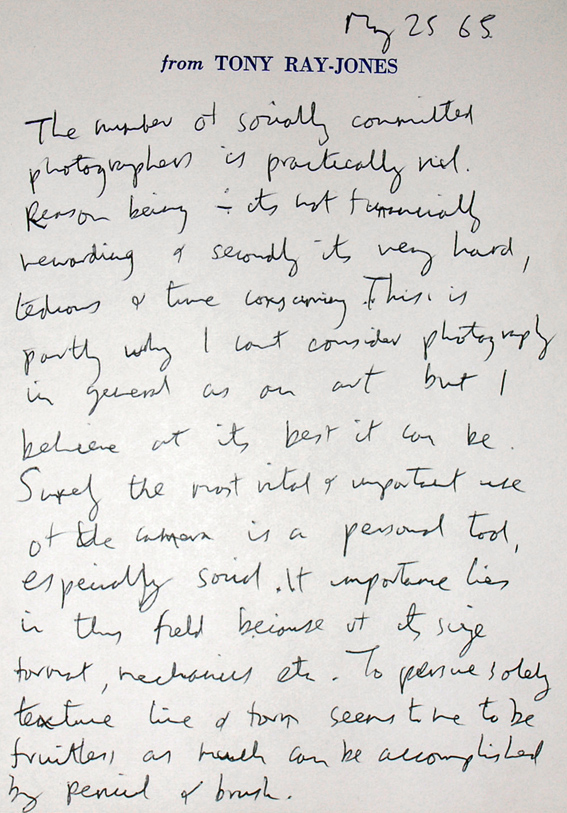 May 25 65.
from TONY RAY-JONES
The number of socially committed
photographers is practically nil.
Reason being - its not financially
rewarding & secondly its very hard,
tedious & time consuming. This is
partly why I cant consider photography
in general as an art but I
believe at its best it can be.
Surely the most vital & important use
of the camera is a personal tool,
especially social. It importance lies
in this field beiause of its size
format, mechanics etc. To persue solely
texture line & form seems to me to be
fruitless as much can be accomplished
by pencil & brush.